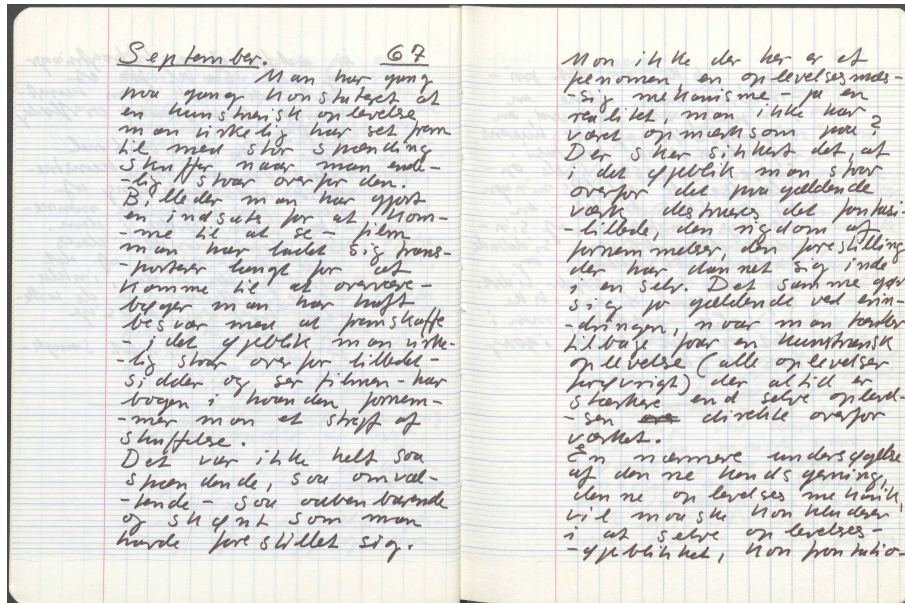 September. 67
Man har gang
paa gang konstateret at
en kunstnerisk oplevelse
man virkelig har set frem
til med stor spænding
skuffer naar man ende-
-lig staar overfor den.
Billeder man har gjort
en indsats for at kom-
-me til at se - film
man har ladet sig trans-
-portere langt for at
komme til at overvære -
bøger man har haft
besvær med at fremskaffe
- i det øjeblik man virke-
-lig staar overfor billedet -
sidder og ser filmen - har
bogen i haanden fornem-
-mer man et strejf af
skuffelse.
Det var ikke helt saa
spændende, saa omvæl-
-tende - saa aabenbarende
og skønt som man
havde forestillet sig.
Mon ikke der her er et
fenomen en oplevelsesmæs-
-sig mekanisme - ja en
realitet, man ikke har
været opmærksom paa?
Der sker sikkert det, at
i det øjeblik man staar
overfor det paagældende
værk destrueres det fantasi-
-billede, den rigdom af
fornemmelser, den forestilling
der har dannet sig inde
i en selv. Det samme gør
sig jo gældende ved erin-
-dringen, naar man tænker
tilbage paa en kunstnerisk
oplevelse (alle oplevelser
forøvrigt) der altid er
stærkere end selve oplevel-
-sen direkte overfor
værket.
En nærmere undersøgelse
af denne kendsgerning,
denne oplevelsesmekanik,
vil maaske konkludere
i at selve oplevelses-
-øjeblikket, konfrontatio-